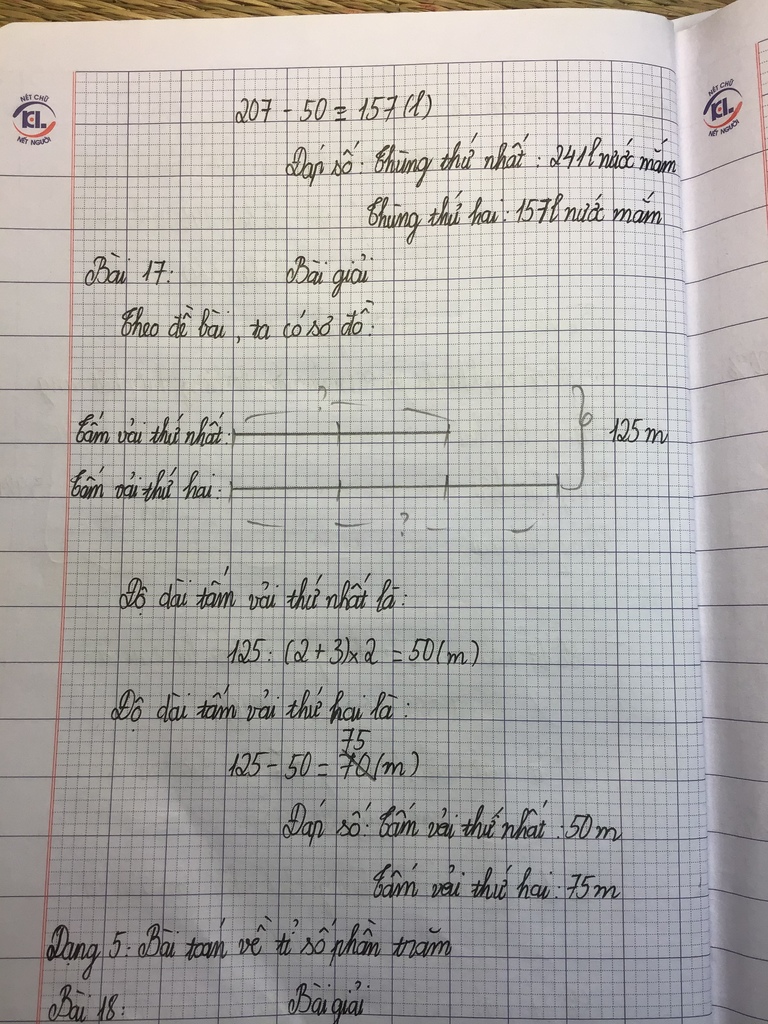 NÉT CHỮ
KL
NẾT NGƯỜI
NÉT CHỮ
KL
NẾT NGƯỜI
207 - 50 = 157 (l)
Đáp số: Thùng thứ nhất: 241l nước mắm
Thùng thứ hai: 157l nước mắm
Bài 17: Bài giải
Theo đề bài, ta có sơ đồ:
?
Tấm vải thứ nhất: 125 m
Tấm vải thứ hai:
?
Độ dài tấm vải thứ nhất là:
125 : (2 + 3) x 2 = 50 (m)
Độ dài tấm vải thứ hai là:
75
125 - 50 = 70 (m)
Đáp số: Tấm vải thứ nhất: 50 m
Tấm vải thứ hai: 75 m
Dạng 5: Bài toán về tỉ số phần trăm
Bài 18: Bài giải